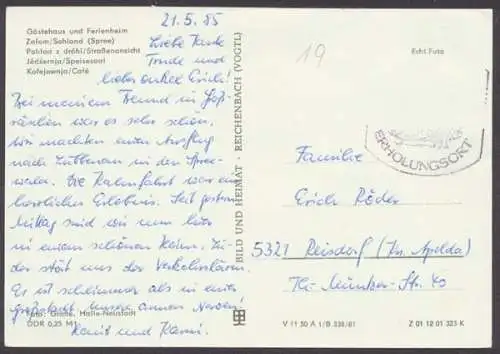 21.5.85
Gästehaus und Ferienheim
Zalom/Sohland (Spree)
Pohlad z dróhi/Straßenansicht
Jědźernja/Speisesaal
Kofejownja/Café
Liebe Tante
Trude und
lieber Onkel Erich!
Bei meinem Freund in
war es sehr schön.
Wir machten einen Ausflug
nach Lübbenau in den Spree-
wald. Die Kahnfahrt war ein
herrliches Erlebnis. Seit gestern
Mittag sind wir nun hier
in einem schönen Heim. Lei-
der stört uns der Verkehrslärm.
Es ist schlimmer als in einer
Großstadt. Unsere armen Nerven!
Foto: Große, Halle-Neustadt
DDR 0,25 M
und
BILD UND HEIMAT · REICHENBACH (VOGTL)
19
Echt Foto
ERHOLUNGSORT
Familie
Erich Röder
5321 Reisdorf (Kr. Apolda)
Th.-Müntzer-Str. 40
V 11 50 A 1/B 338/81
Z 01 12 01 323 K